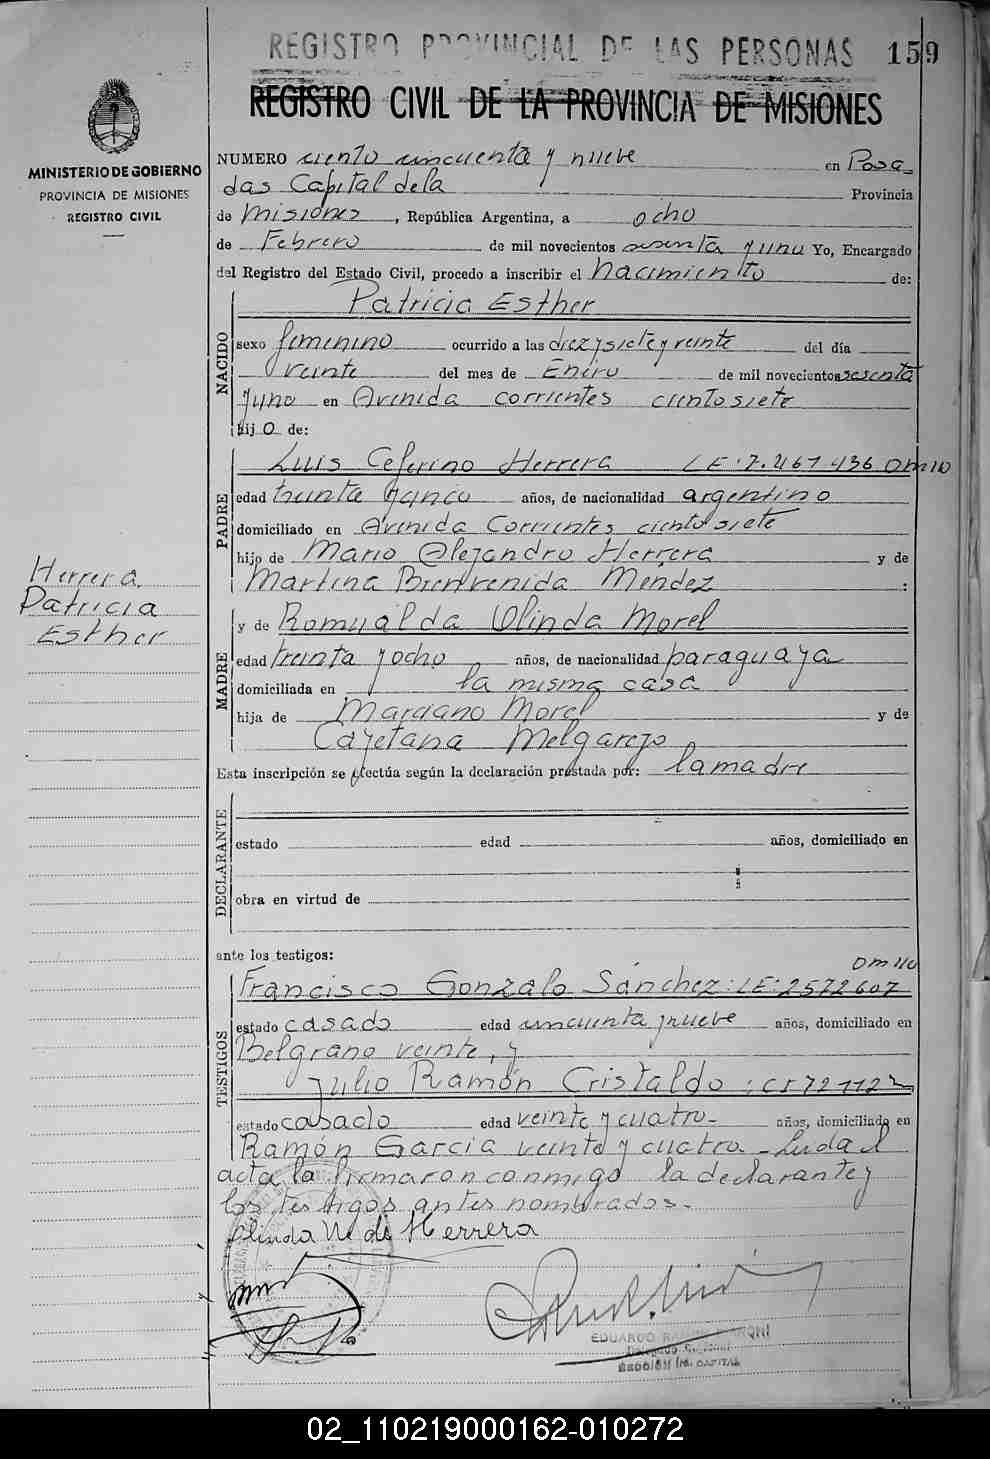 REGISTRO PROVINCIAL DE LAS PERSONAS 159
REGISTRO CIVIL DE LA PROVINCIA DE MISIONES
MINISTERIO DE GOBIERNO
PROVINCIA DE MISIONES
REGISTRO CIVIL
NUMERO ciento cincuenta y nueve en Posa_
das Capital dela Provincia
de Misiones, República Argentina, a ocho
de Febrero de mil novecientos sesenta y uno Yo, Encargado
del Registro del Estado Civil, procedo a inscribir el nacimiento de:
NACIDO
Patricia Esther
sexo femenino ocurrido a las diez y siete y veinte del día
veinte del mes de Enero de mil novecientos sesenta
y uno en Avenida corrientes ciento siete
hijo de:
PADRE
Luis Ceferino Herrera LE.7.467.436 DM10
edad treinta y cinco años, de nacionalidad argentino
domiciliado en Avenida Corrientes ciento siete
hijo de Mario Alejandro Herrera y de
Martina Bienvenida Méndez :
Herrera
Patricia
Esther
MADRE
y de Romualda Olinda Morel
edad treinta y ocho años, de nacionalidad paraguaya
domiciliada en la misma casa
hija de Marciano Morel y de
Cayetana Melgarejo
Esta inscripción se efectúa según la declaración prestada por: la madre
DECLARANTE
estado edad años, domiciliado en
obra en virtud de
ante los testigos:
TESTIGOS
DM
Francisco Gonzalo Sánchez: LE: 2572607
estado casado edad cincuenta y nueve años, domiciliado en
Belgrano veinte, y
Julio Ramón Cristaldo:
estado casado edad veinte y cuatro- años, domiciliado en
Ramón García veinte y cuatro_ Leida el
acta, la firmaron conmigo la declarante y
los testigos antes nombrados.-
Olinda M de Herrera
EDUARDO
Delegado
SECCION 1ra. CAPITAL
02_110219000162-010272